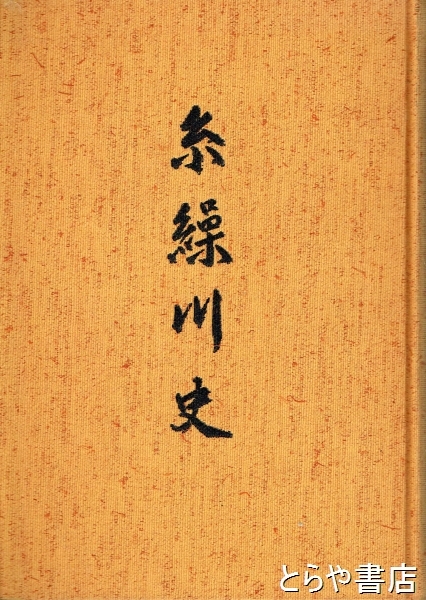 糸繰川史
とらや書店